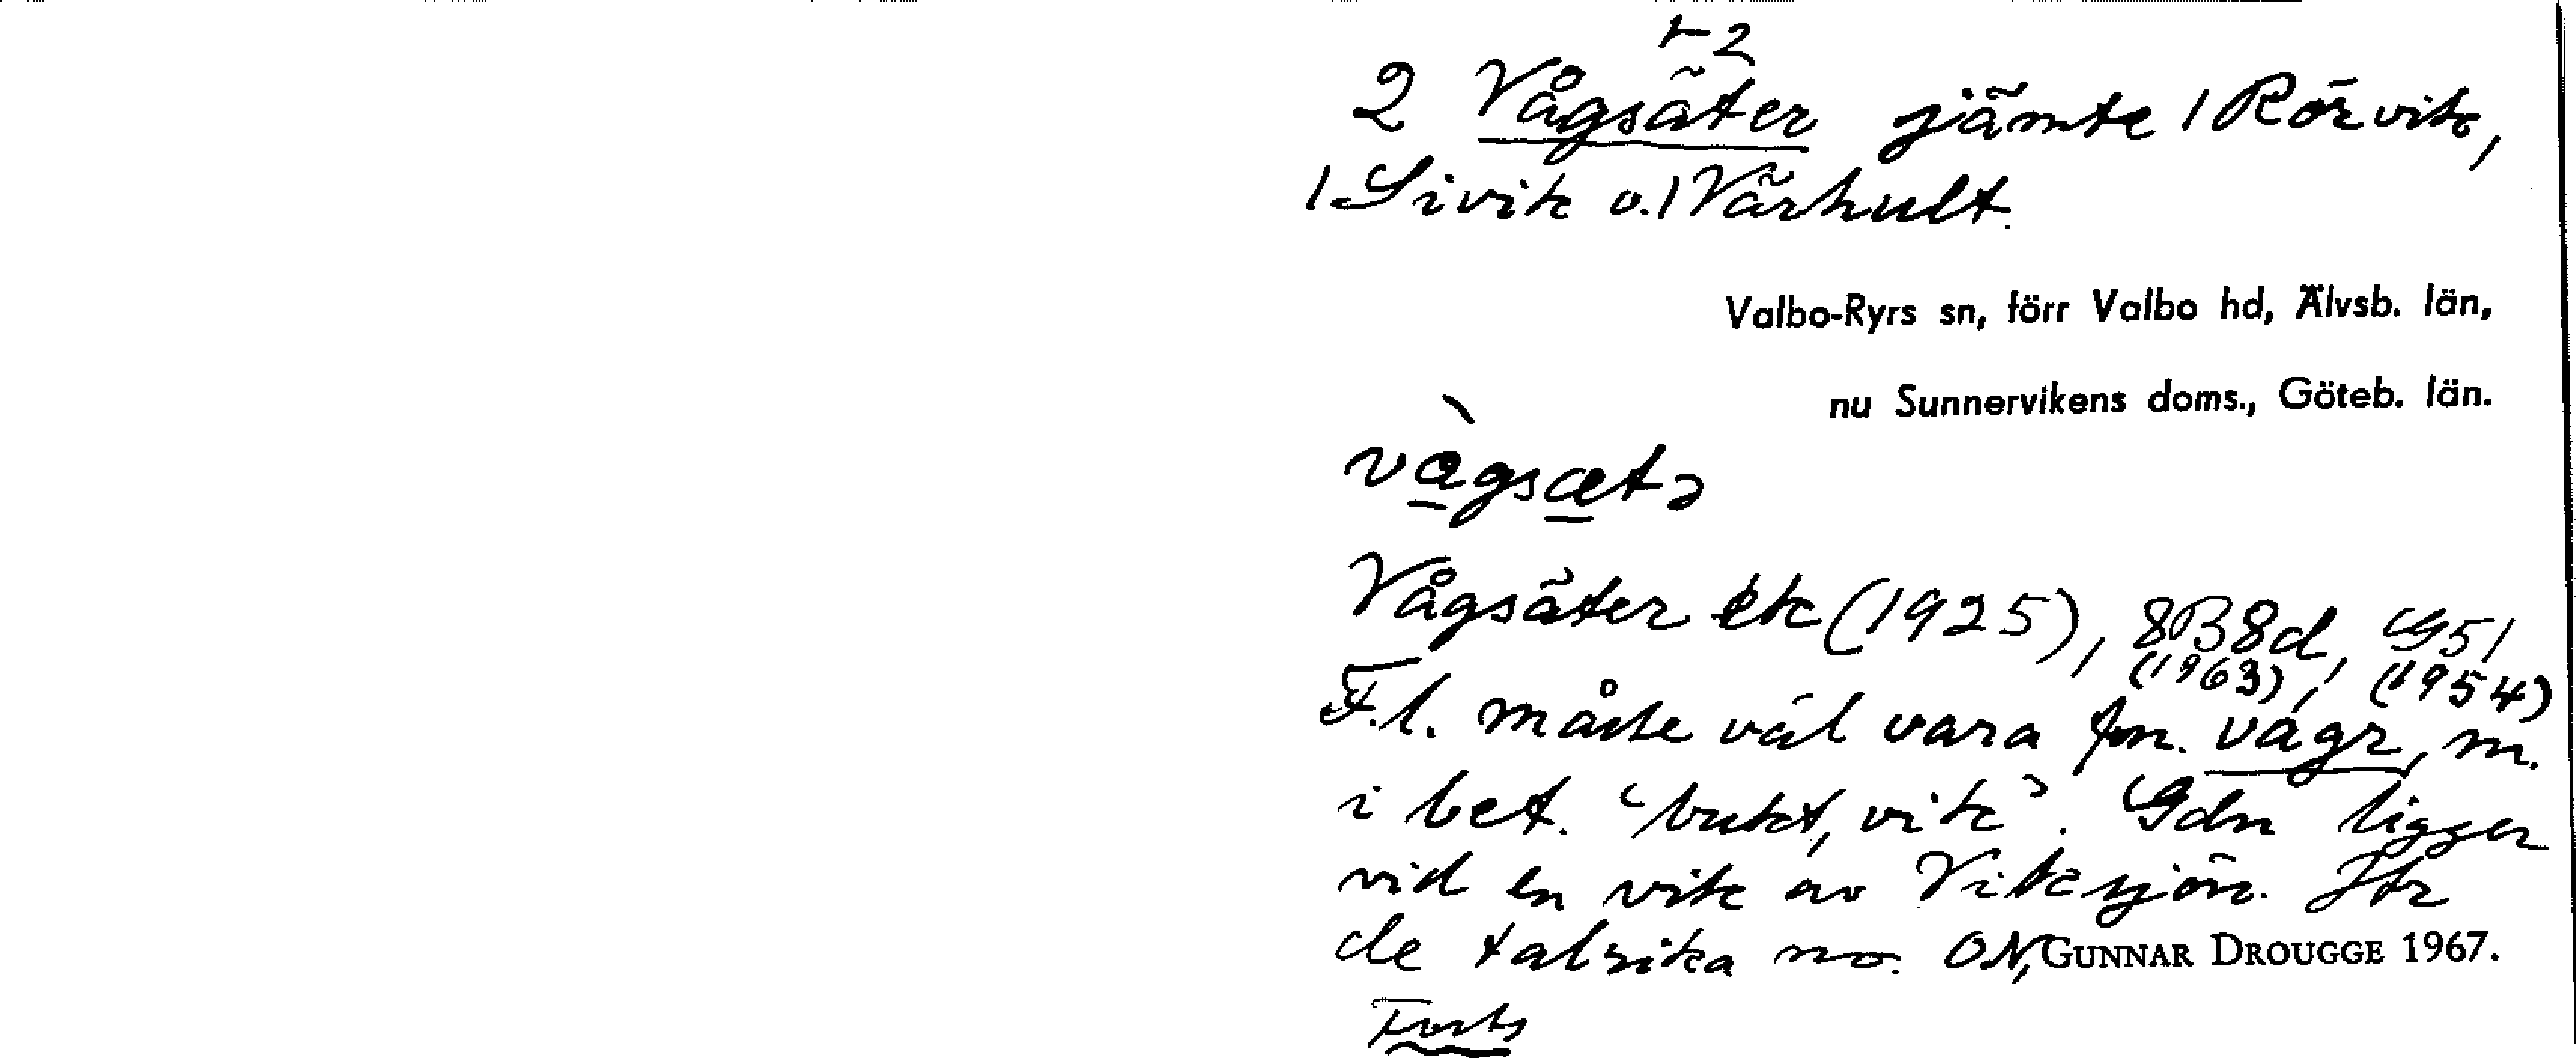 1-2
2 Vågsäter jämte 1 Rörvik,
1 Sivik o. 1 Värhult.
Valbo-Ryrs sn, förr Valbo hd, Älvsb. län,
nu Sunnervikens doms., Göteb. län.
vàgsætə
Vågsäter etc (1925), 8B8d, G51
(1963), (1954)
F.l. måste väl vara fvn. vágr, m.
i bet. 'bukt, vik'. Gdn ligger
vid en vik av Viksjön. Jfr
de talrika no. ON,
GUNNAR DROUGGE 1967.
Forts